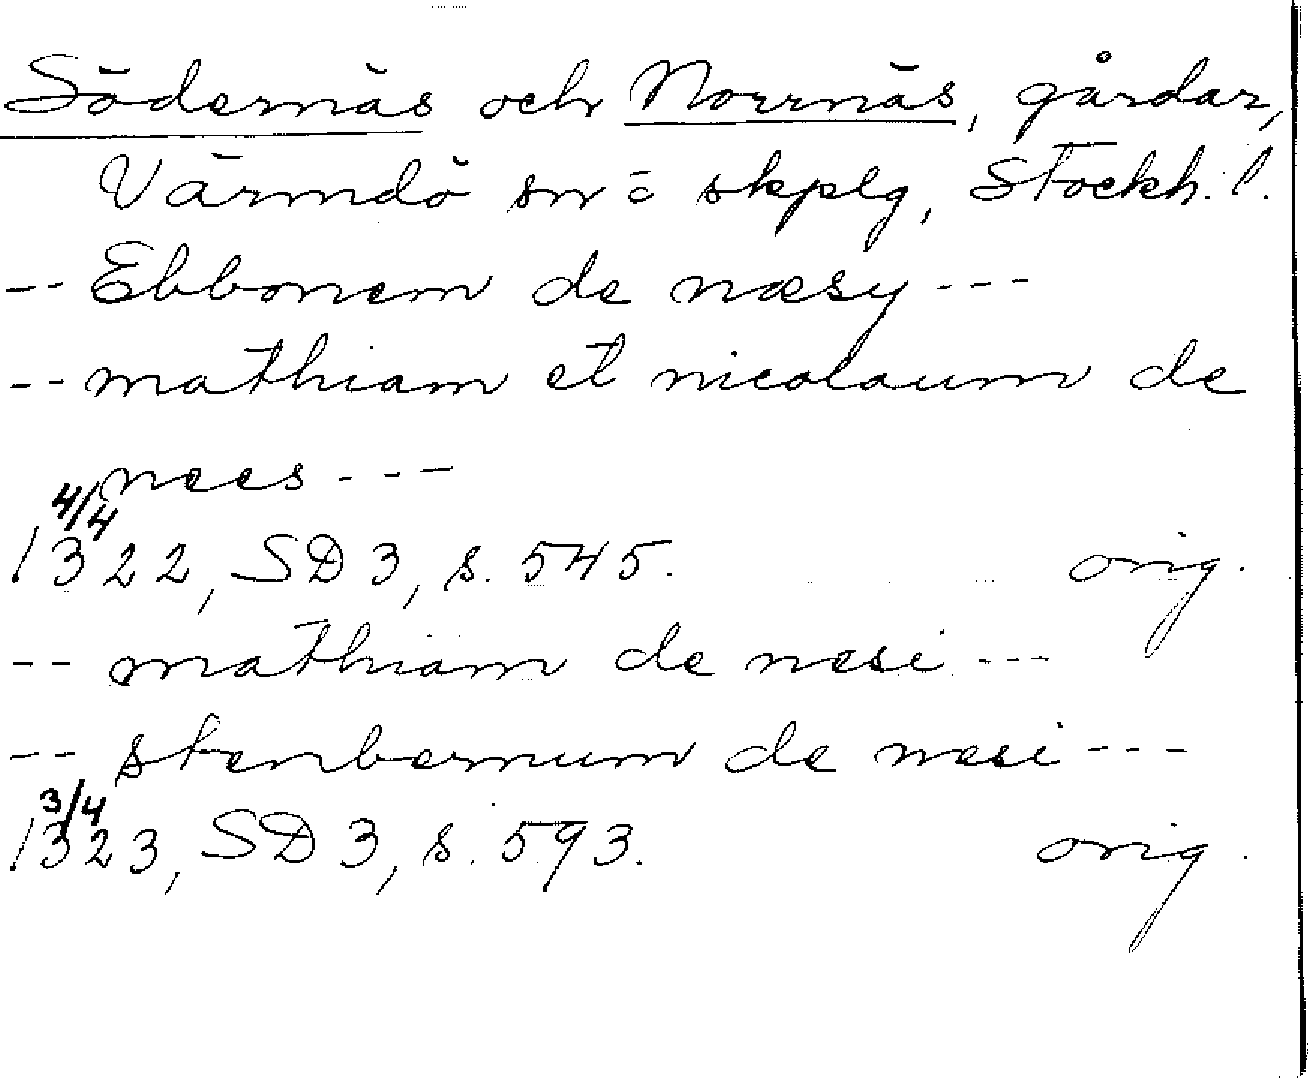 Södernäs och Norrnäs, gårdar,
Värmdö sn o skplg, Stockh. l.
-- Ebbonem de næsy ---
-- mathiam et nicolaum de
nees ---
4/4
1322, SD 3, s. 545. orig.
-- mathiam de næsi ---
-- stenbernum de næsi ---
3/4
1323, SD 3, s. 593. orig.